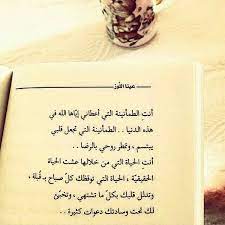 عينا اللّوز
أنتِ الطمأنينة التي أعطاني إيّاها الله في
هذه الدنيا .. الطمأنينة التي تجعل قلبي
يبتسم ، وتمطر روحي بالرضا ..
أنت الحياة التي من خلالها عشت الحياة
الحقيقيّة ، الحياة التي توقظك كلّ صباح بـ قُبلة ،
وتدلل قلبك بكلّ ما تشتهي ، وتخبّئ
لك تحت وسادتك دعوات كثيرة ..